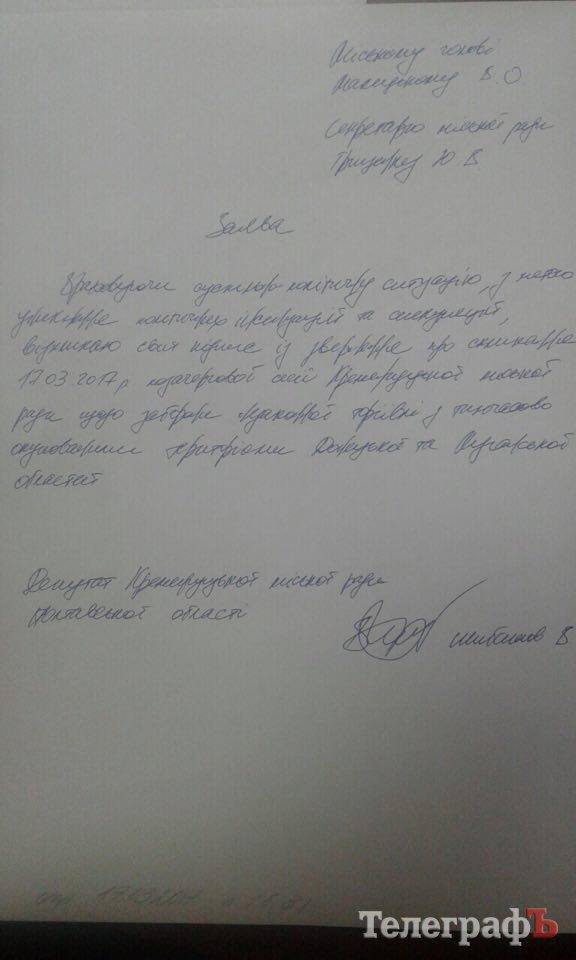 Міському голові
Малецькому В.О
Секретарю міської ради
Грицаюку Ю.В.
Заява
Враховуючи суспільно-політичну ситуацію, з метою
уникнення політичних провокацій та спекуляцій,
відкликаю свій підпис із звернення про скликання
17.03.2017р позачергової сесії Кременчуцької міської
ради щодо заборони торгівлі з тимчасово
окупованими територіями Донецької та Луганської
областей
Депутат Кременчуцької міської ради
Полтавської області
В
ТелеграфЪ